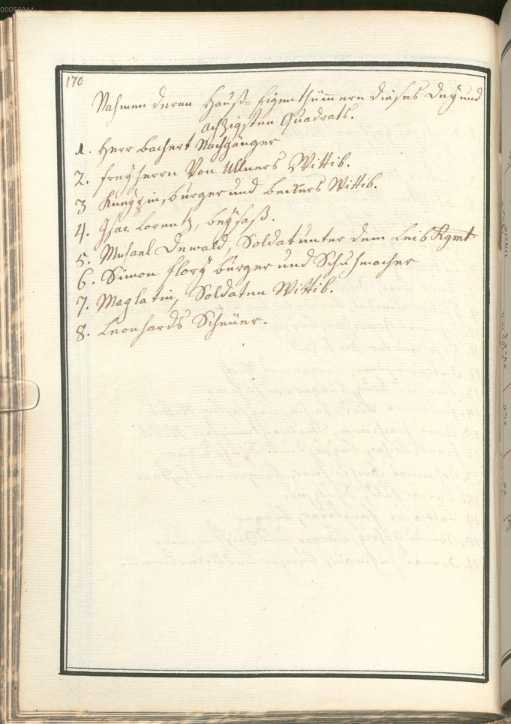 170
Nahmen deren Hauß-Eigenthümmern dieses Drey und
achzigsten Quadrats.
1. Herr Bachert Nachgänger
2. Freyherrn Von Ullners Wittib.
3 burger und beckers Wittib.
4. Isac Lorentz, beysaß.
5. Michael Dewald, Soldat unter dem Leib Rgmt
6. Simon Flory burger und Schuhmacher
7. Maglatin, Soldaten Wittib.
8. Leonhards Scheuer.